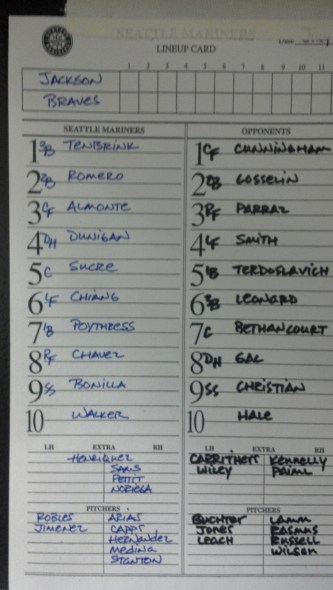 SEATTLE MARINERS
LINEUP CARD
1 2 3 4 5 6 7 8 9 10 11
JACKSON
BRAVES
SEATTLE MARINERS
1 3B TENBRINK
2 2B ROMERO
3 CF ALMONTE
4 DH DUNIGAN
5 C SUCRE
6 LF CHIANG
7 1B POYTHRESS
8 RF CHAVEZ
9 SS BONILLA
10 WALKER
LH EXTRA RH
HENRIQUEZ
SAMS
PETIT
NORIEGA
PITCHERS
ROBLES ARIAS
JIMENEZ CAPPS
HERNANDEZ
MEDINA
STANTON
OPPONENTS
1 CF CUNNINGHAM
2 2B GOSSELIN
3 RF PARRAZ
4 LF SMITH
5 1B TERDOSLAVICH
6 3B LEONARD
7 C BETHANCOURT
8 DH GAC
9 SS CHRISTIAN
10 HALE
LH EXTRA RH
CARRITHERS KENNELLY
WILEY
PITCHERS
BUCHTER LAMM
JONES RASMUS
LEACH RUSSELL
WILSON